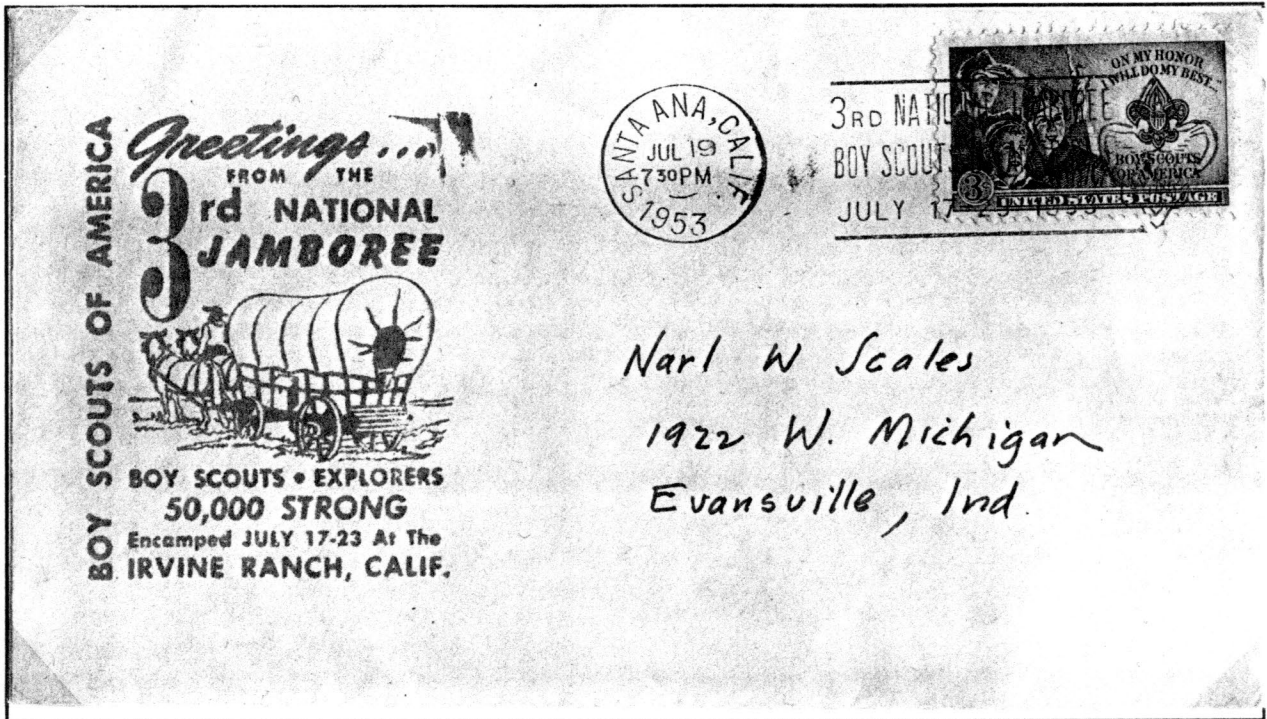 BOY SCOUTS OF AMERICA
Greetings...
FROM THE
3rd NATIONAL
JAMBOREE
BOY SCOUTS • EXPLORERS
50,000 STRONG
Encamped JULY 17-23 At The
IRVINE RANCH, CALIF.
SANTA ANA, CALIF.
JUL 19
7 30 PM
1953
3RD NATIONAL JAMBOREE
BOY SCOUTS
JULY 17-23 1953
"ON MY HONOR
I WILL DO MY BEST..."
BOY SCOUTS
OF AMERICA
3¢
UNITED STATES POSTAGE
Narl W Scales
1922 W. Michigan
Evansville, Ind.